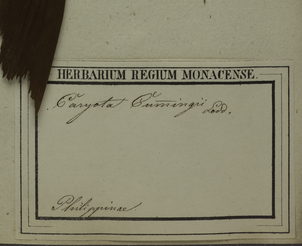 HERBARIUM REGIUM MONACENSE.
Caryota Cumingii Lodd.
Philippinae